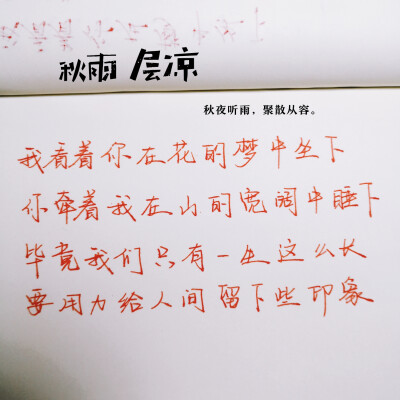 秋雨 层凉
秋夜听雨，聚散从容。
我看着你在花的梦中坐下
你牵着我在山的宽阔中睡下
毕竟我们只有一生这么长
要用力给人间留下些印象